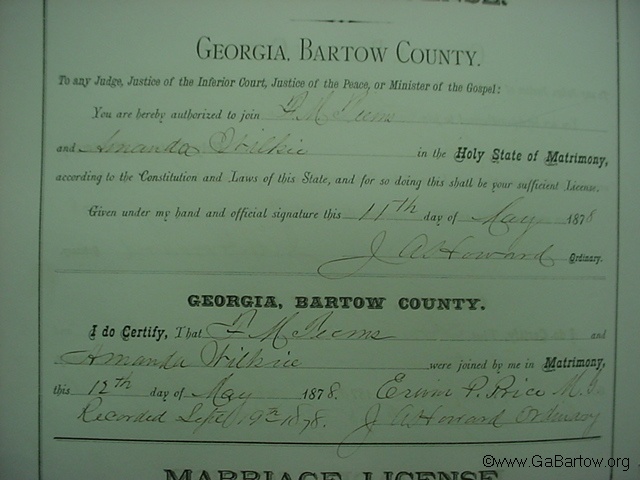 GEORGIA, BARTOW COUNTY.
To any Judge, Justice of the Inferior Court, Justice of the Peace, or Minister of the Gospel:
You are hereby authorized to join F M Teems
and Amanda Wilkie in the Holy State of Matrimony,
according to the Constitution and Laws of this State, and for so doing this shall be your sufficient License.
Given under my hand and official signature this 11th day of May 1878
J A Howard Ordinary.
GEORGIA, BARTOW COUNTY.
I do Certify, That F M Teems and
Amanda Wilkie were joined by me in Matrimony,
this 12th day of May 1878. Erwin P. Price M.G.
Recorded Sept 19th 1878. J A Howard Ordinary
MARRIAGE LICENSE
©www.GaBartow.org